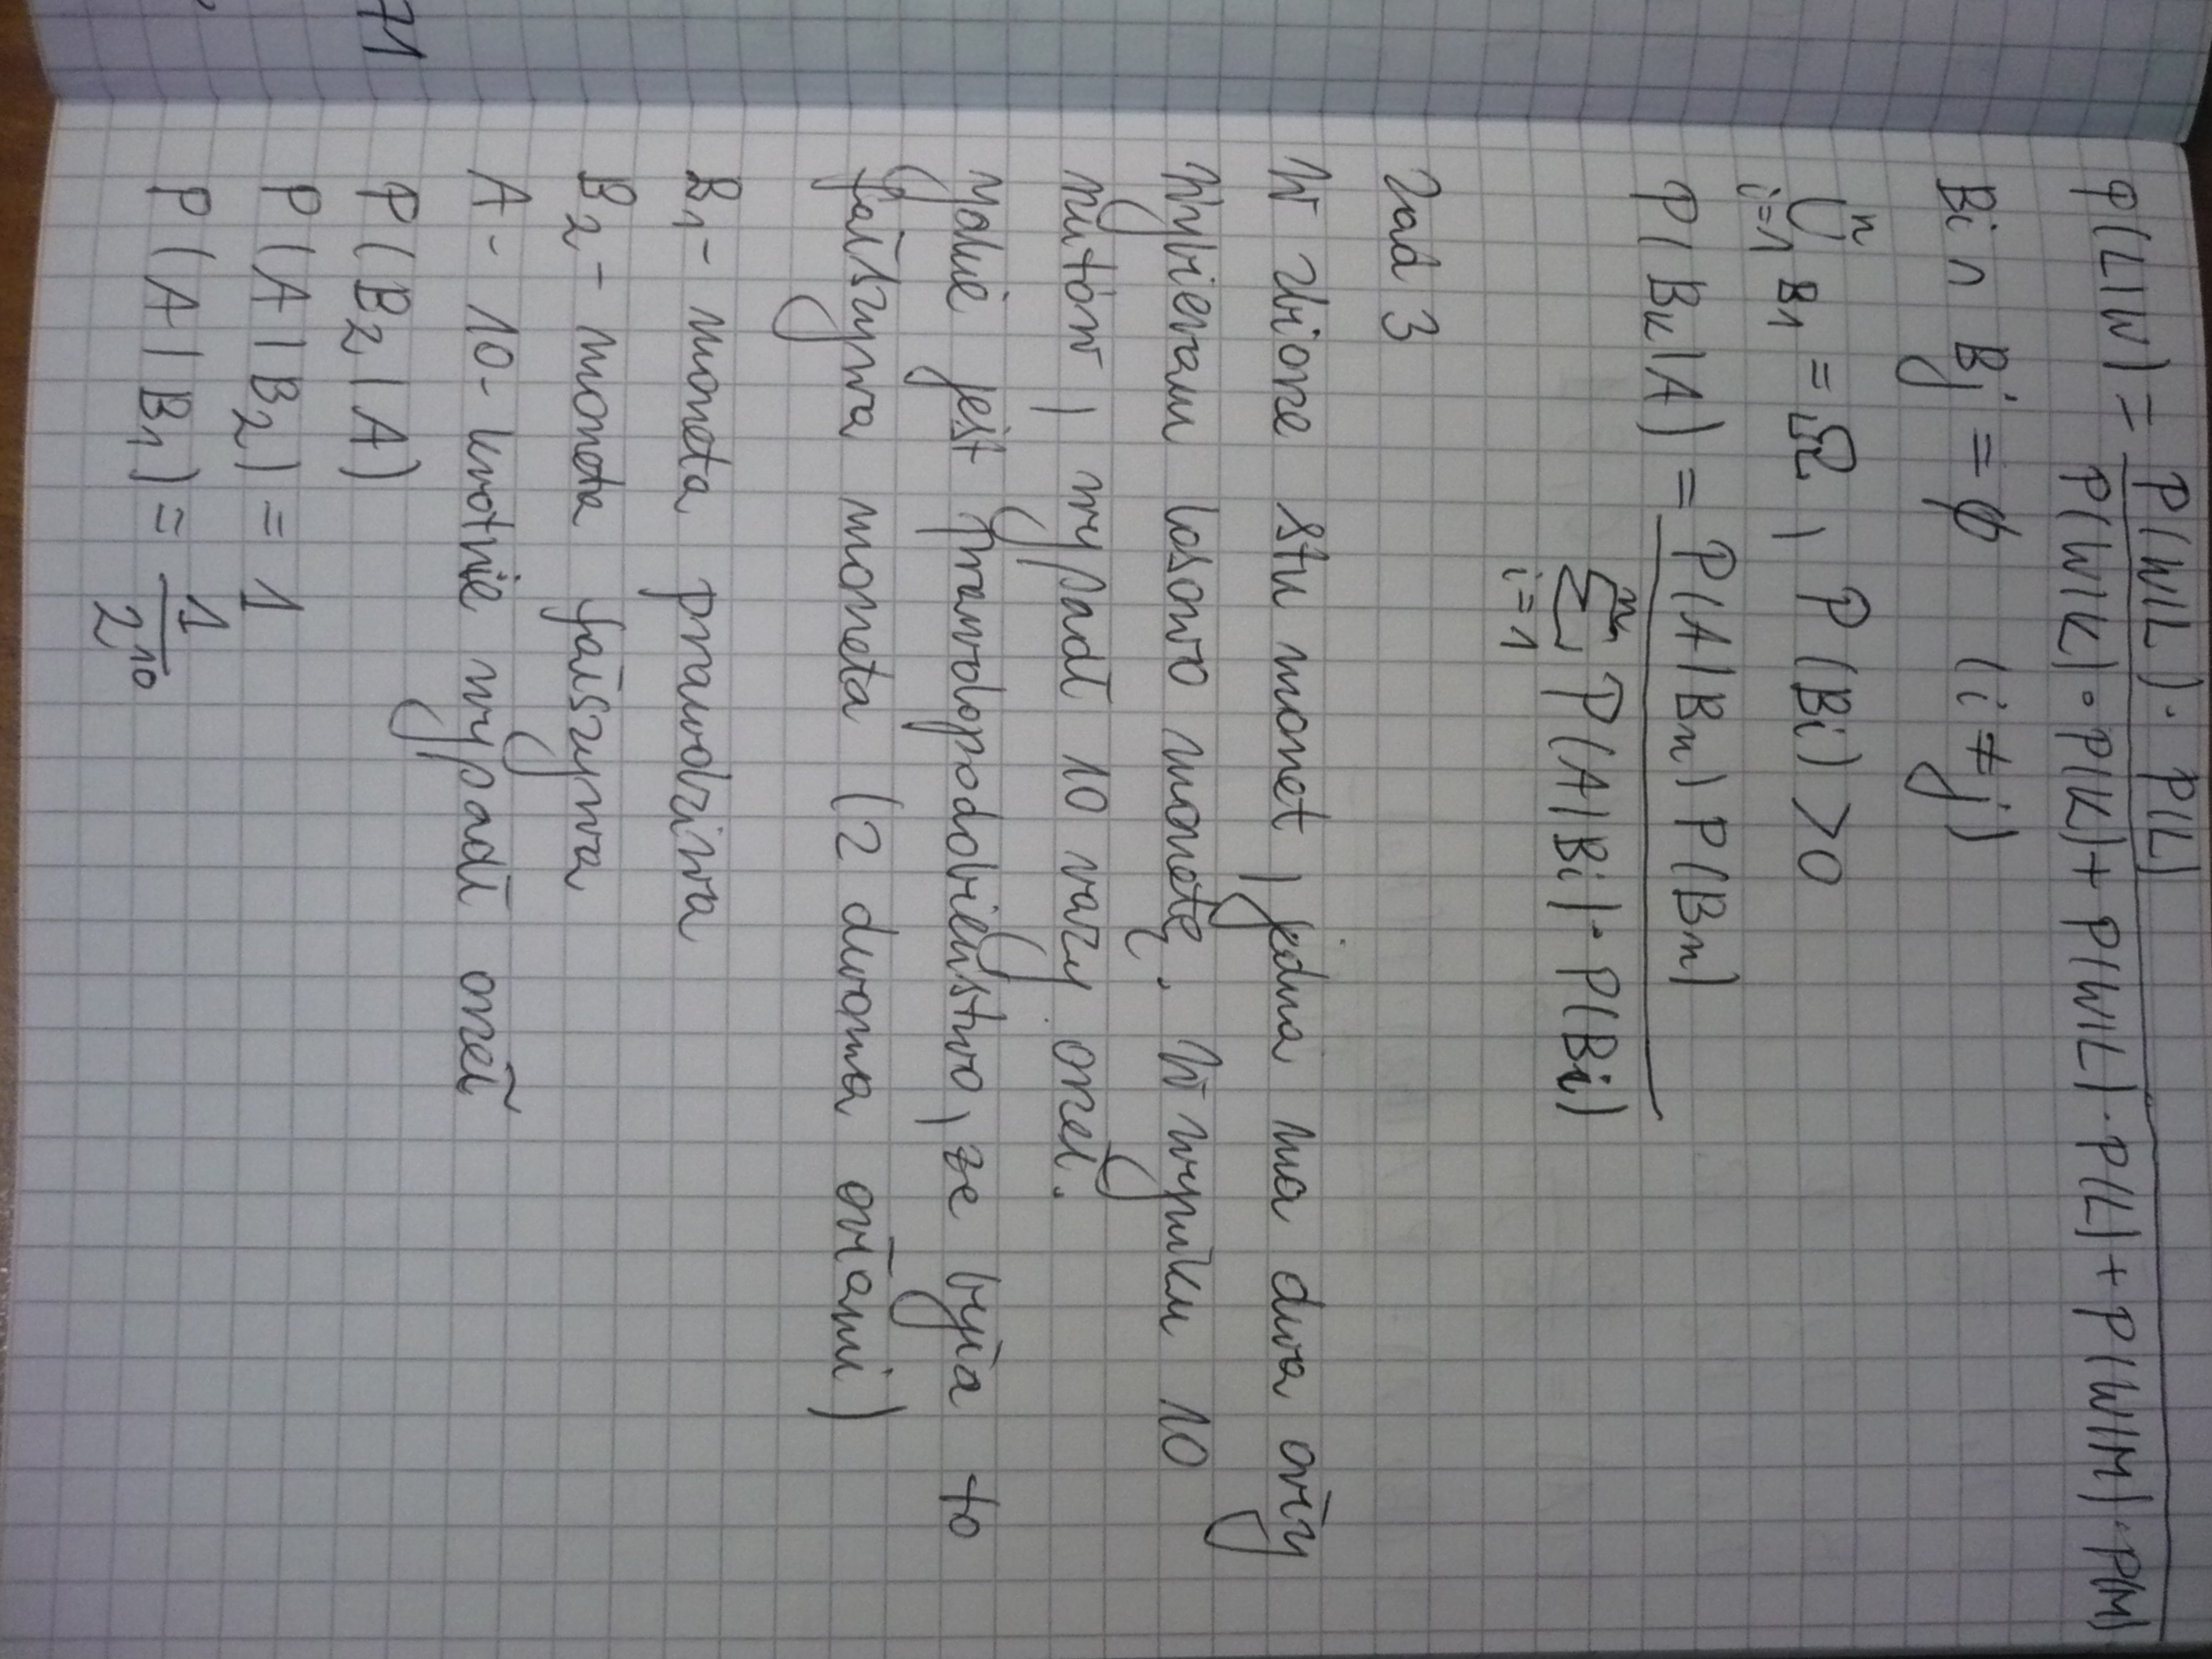 P(L|W) = P(W|L) · P(L) / P(W|K) · P(K) + P(W|L) · P(L) + P(W|M) · P(M)
Bi ∩ Bj = ∅ (i ≠ j)
⋃ⁿ_{i=1} B1 = Ω, P(Bi) > 0
P(Bk|A) = P(A|Bn) P(Bn) / Σⁿ_{i=1} P(A|Bi) · P(Bi)
Zad 3
W zbiorze stu monet, jedna ma dwa orły
Wybieram losowo monetę. W wyniku 10
rzutów, wypadł 10 razy orzeł.
Jakie jest prawdopodobieństwo, że była to
fałszywa moneta (z dwoma orłami)
B1 - moneta prawdziwa
B2 - moneta fałszywa
A - 10-krotnie wypadł orzeł
P(B2|A)
P(A|B2) = 1
P(A|B1) = 1/2¹⁰
71